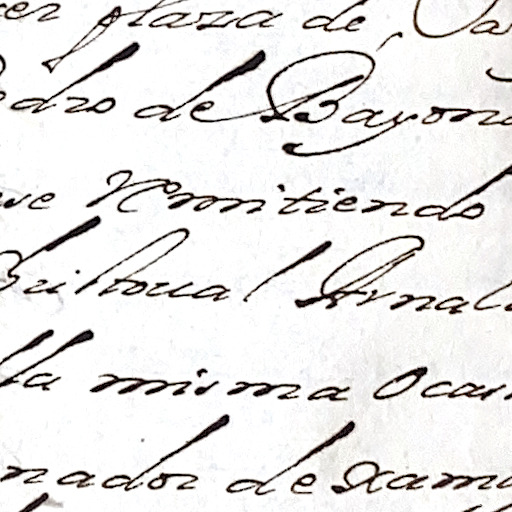 cer plaza de
edro de Bayona
se Remitiendo
Christoual Arnal
lla misma Ocasi
nador de xama